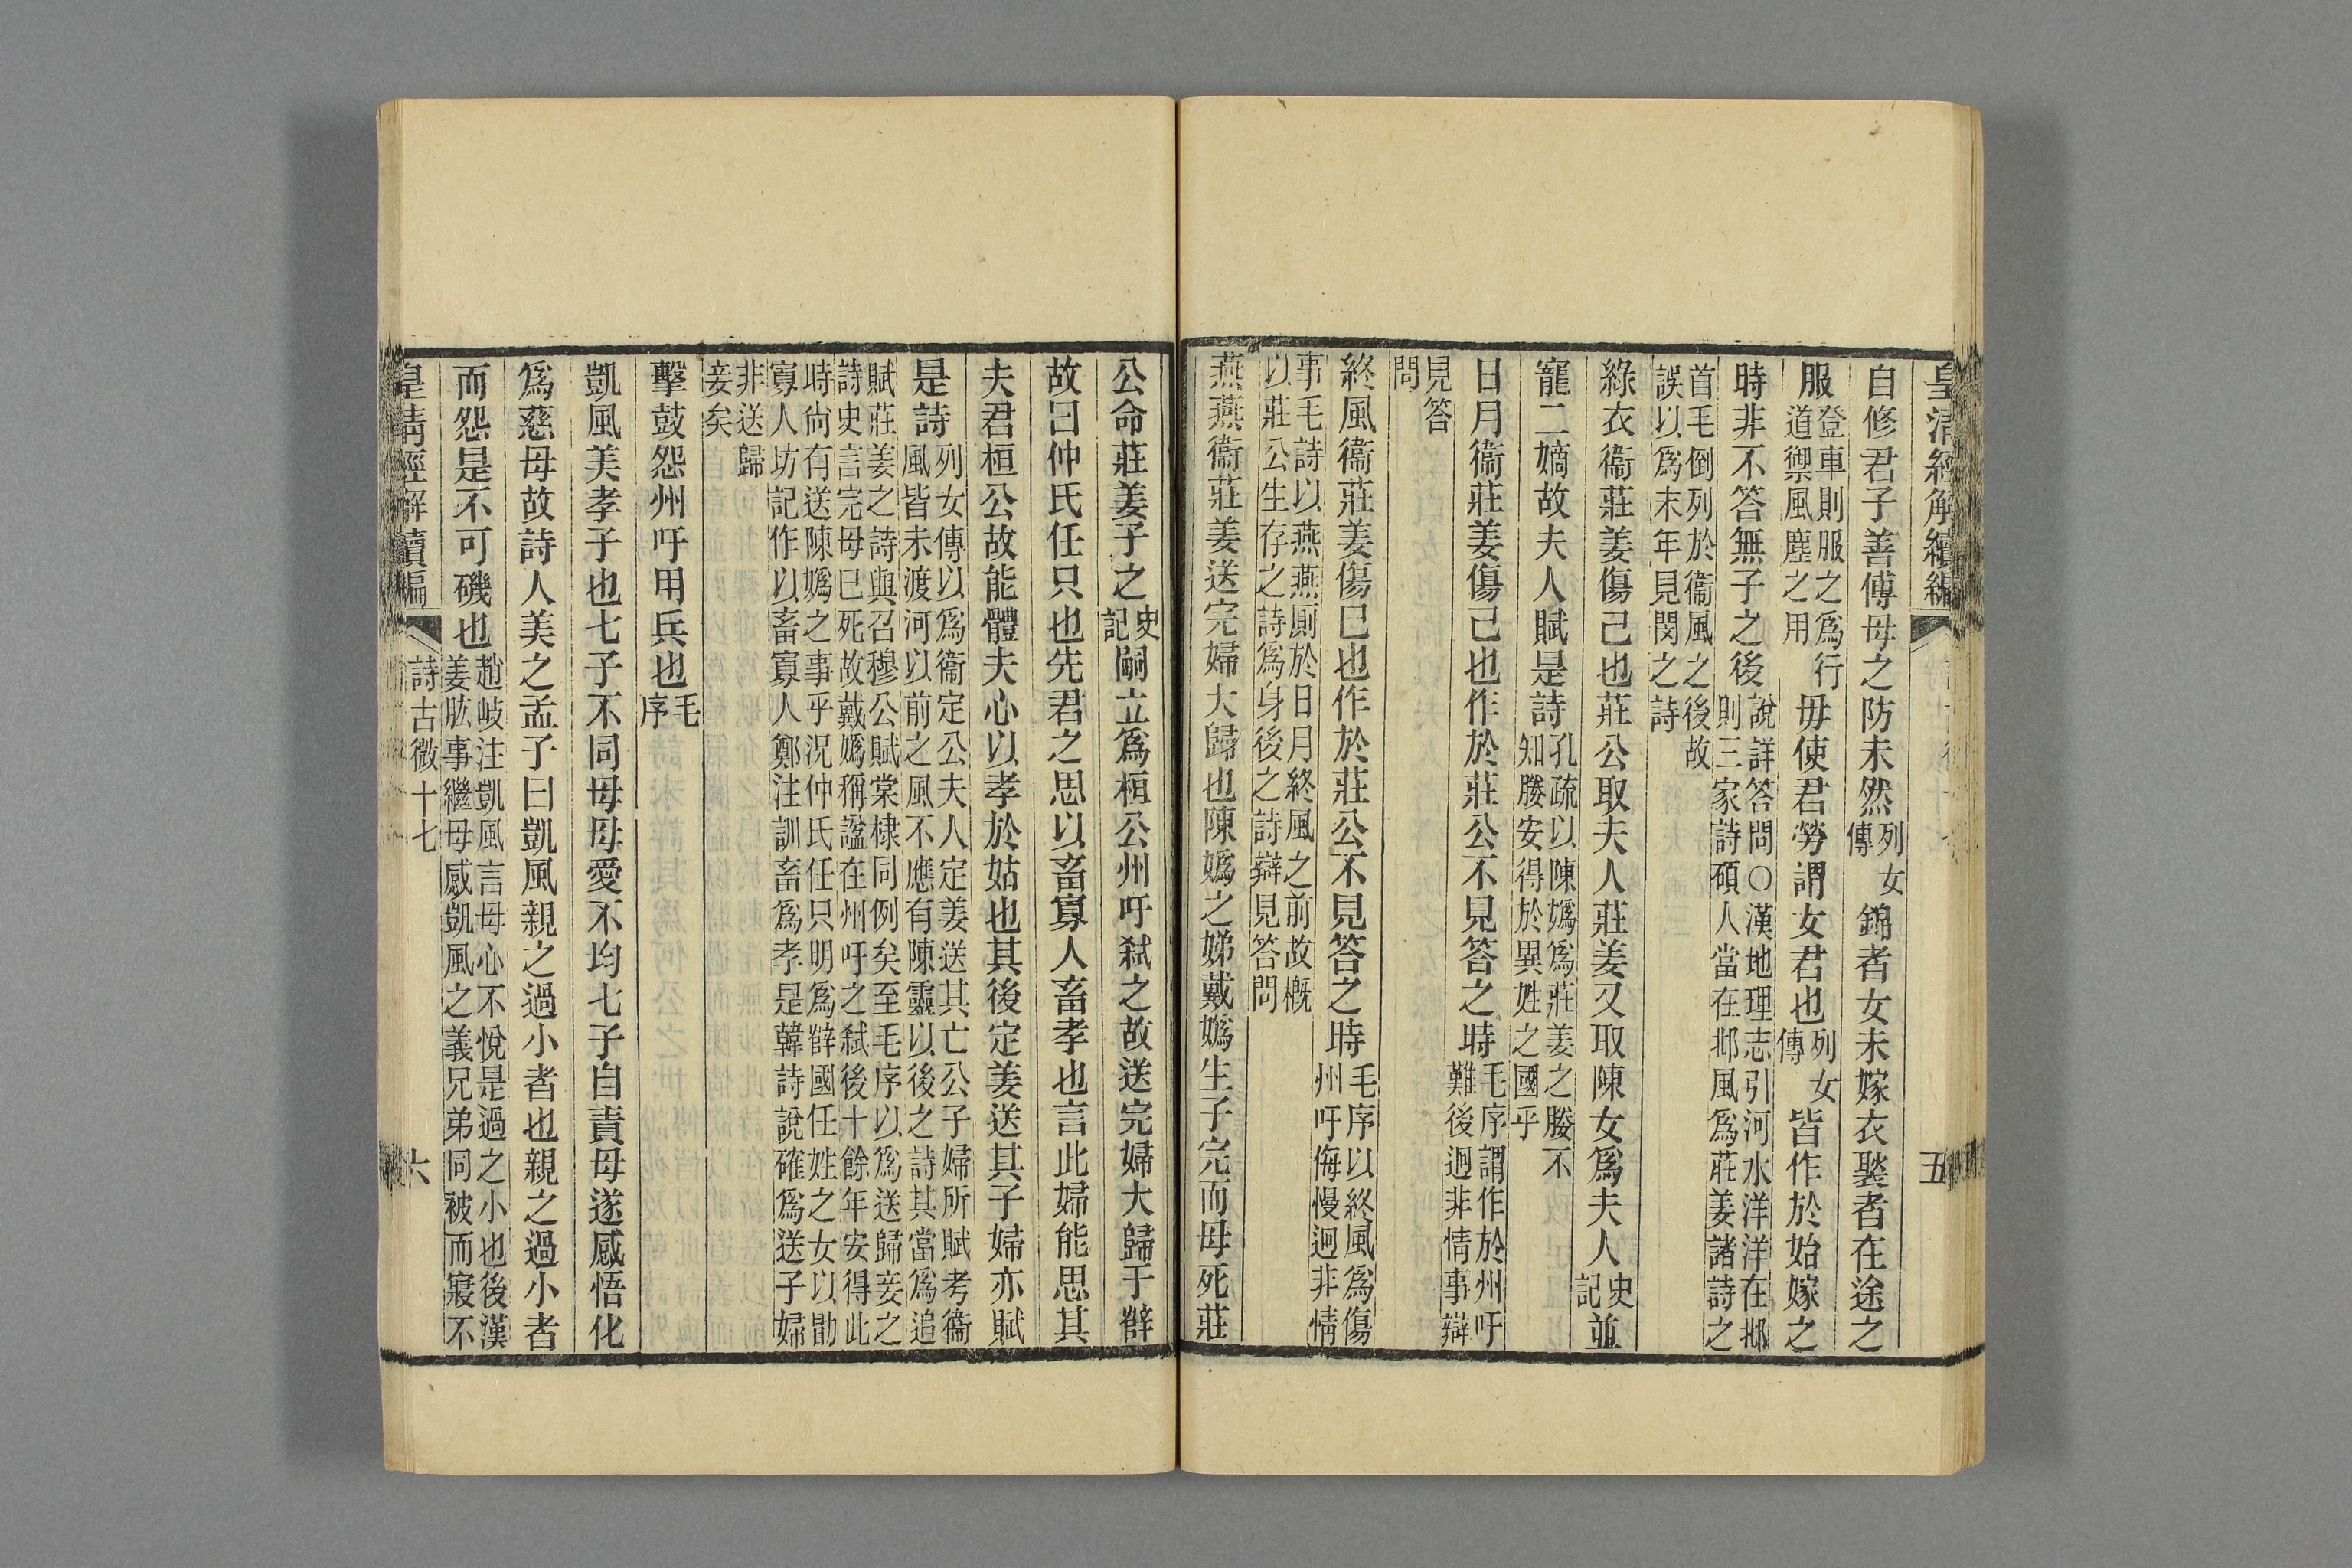 皇清經解續編
五
自修君子善傅母之防未然列女傳錦者女未嫁衣褧者在途之
服登車則服之爲行道禦風塵之用毋使君勞謂女君也列女傳皆作於始嫁之
時非不答無子之後說詳答問〇漢地理志引河水洋洋在邶則三家詩碩人當在邶風爲莊姜諸詩之
首毛倒列於衞風之後故誤以爲末年見閔之詩
綠衣衞莊姜傷己也莊公取夫人莊姜又取陳女爲夫人史記並
寵二嫡故夫人賦是詩孔疏以陳嬀爲莊姜之媵不知媵安得於異姓之國乎
日月衞莊姜傷己也作於莊公不見答之時毛序謂作於州吁難後迥非情事辯
見答問
終風衞莊姜傷巳也作於莊公不見答之時毛序以終風爲傷州吁侮慢迥非情
事毛詩以燕燕廁於日月終風之前故槪以莊公生存之詩爲身後之詩辯見答問
燕燕衞莊姜送完婦大歸也陳嬀之娣戴嬀生子完而母死莊
公命莊姜子之史記嗣立爲桓公州吁弑之故送完婦大歸于薛
故曰仲氏任只也先君之思以畜寡人畜孝也言此婦能思其
夫君桓公故能體夫心以孝於姑也其後定姜送其子婦亦賦
是詩列女傳以爲衞定公夫人定姜送其亡公子婦所賦考衞風皆未渡河以前之風不應有陳靈以後之詩其當爲追
賦莊姜之詩與召穆公賦棠棣同例矣至毛序以爲送歸妾之詩史言完母巳死故戴嬀稱諡在州吁之弑後十餘年安得此
時尙有送陳嬀之事乎況仲氏任只明爲薛國任姓之女以勖寡人坊記作以畜寡人鄭注訓畜爲孝是韓詩說確爲送子婦
非送歸妾矣
擊鼓怨州吁用兵也毛序
凱風美孝子也七子不同母母愛不均七子自責母遂感悟化
爲慈母故詩人美之孟子曰凱風親之過小者也親之過小者
而怨是不可磯也趙岐注凱風言母心不悅是過之小也後漢姜肱事繼母感凱風之義兄弟同被而寢不
皇清經解續編
詩古微十七
六